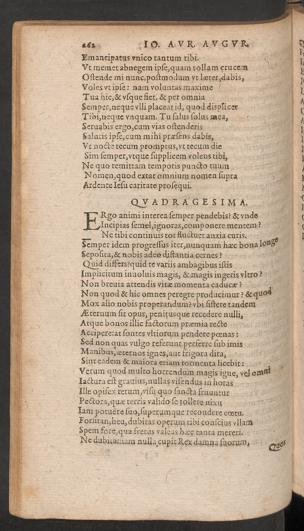 262 IO. AVR. AVGVR.
Emancipatus vnico tantum tibi.
Vt memet abnegem ipse, quam tollam crucem
Ostende mi nunc, postmodum vt læter, dabis,
Voles vt ipse: nam voluntas maxime
Tua hic, & vsque fiet, & per omnia
Semper, neque vlli placeat id, quod displicet
Tibi, neque vnquam. Tu salus salus mea,
Seruabis ergo, cum vias ostenderis
Salutis ipse, cum mihi præsens dabis,
Vt nocte tecum promptus, vt tecum die
Sim semper, vtque supplicem volens tibi,
Ne quo remittam temporis puncto tuum
Nomen, quod extat omnium nomen supra
Ardente Iesu caritate prosequi.
QVADRAGESIMA.
Ergo animi interea semper pendebis? & vnde
Incipias semel, ignoras, componere mentem?
Ne tibi continuis tot fluctuet anxia curis.
Semper idem progressus iter, nunquam hæc bona longe
Seposita, & nobis adeo distantia cernes?
Quid differs? quid te variis ambagibus istis
Implicitum inuoluis magis, & magis ingeris vltro?
Non breuia attendis vitæ momenta caducæ?
Non quod & hic omnes petegre producimur? & quod
Mox alio nobis properandum? vbi sistere tandem
Æternum sit opus, penitusque recedere nulli,
Atque bonos ille factorum præmia recto
Acciperet at sontes vltiorum pendere pœnas:
Sed non quas vulgo referunt perferre sub imis
Manibus, æternos ignes, aut frigora dira,
Sint eadem & maiora etiam tormenta licebit:
Verum quod multo horrendum magis igne, vel omni
Iactura est grauius, nullas visendus in horas
Ille opifex rerum, visu quo sancta fruuntur
Pectora, quæ terris valido se tollere nixu
Iam potuere suo, superumque recondere cœtu.
Forsitan, heu, dubitas operum tibi conscius vllam
Spem fore, qua fretus valeas hæc tanta mereri.
Ne dubita: nam nulla cupit Rex damna suorum,